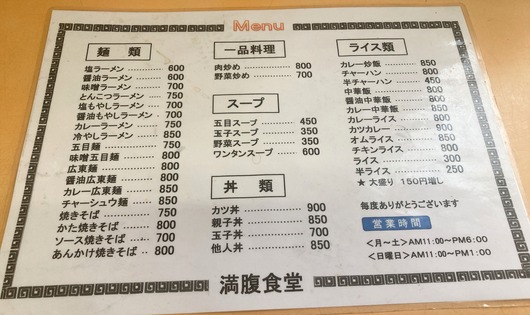 Menu
麺類
塩ラーメン 600
醤油ラーメン 600
味噌ラーメン 700
とんこつラーメン 750
塩もやしラーメン 700
醤油もやしラーメン 700
カレーラーメン 750
冷やしラーメン 850
五目麺 750
味噌五目麺 800
広東麺 800
醤油広東麺 800
カレー広東麺 850
チャーシュウ麺 850
焼きそば 750
かた焼きそば 800
ソース焼きそば 700
あんかけ焼きそば 800
一品料理
肉炒め 800
野菜炒め 700
スープ
五目スープ 450
玉子スープ 350
野菜スープ 350
ワンタンスープ 600
丼類
カツ丼 900
親子丼 850
玉子丼 700
他人丼 850
ライス類
カレー炒飯 850
チャーハン 800
半チャーハン 450
中華飯 800
醤油中華飯 800
カレー中華飯 850
カレーライス 800
カツカレー 900
オムライス 850
チキンライス 800
ライス 300
半ライス 250
★大盛り 150円増し
毎度ありがとうございます
営業時間
<月~土>AM11:00~PM6:00
<日曜日>AM11:00~PM1:00
満腹食堂